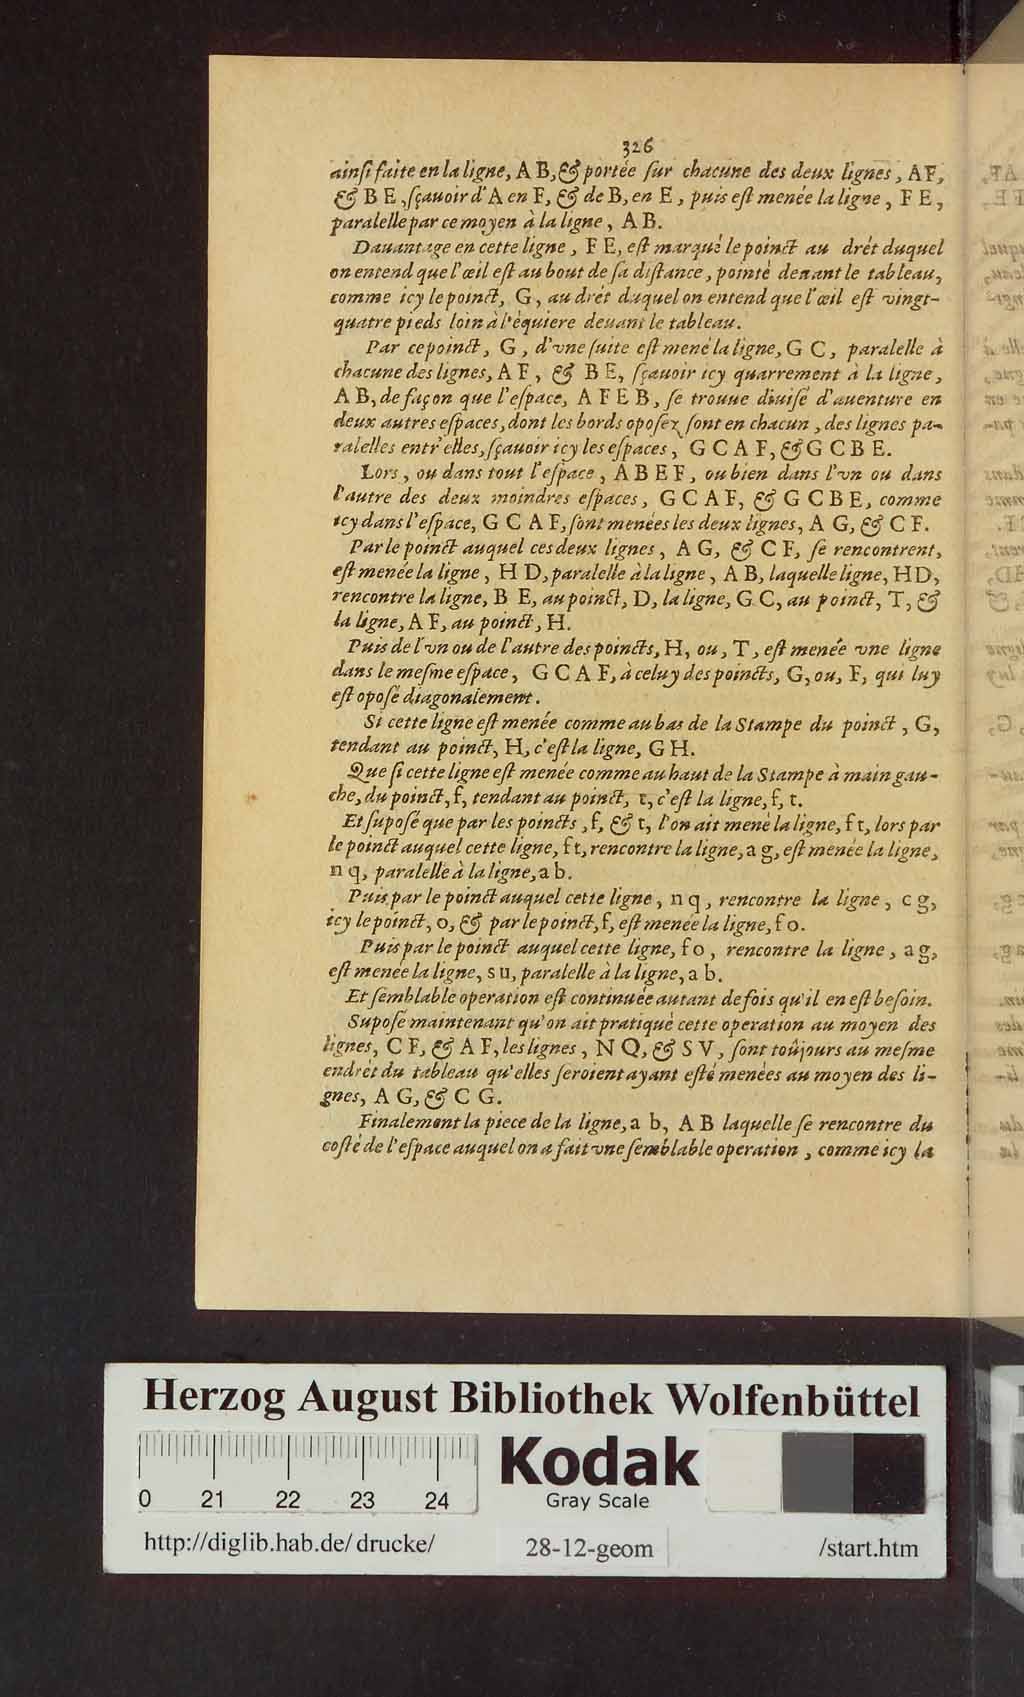 326
ainſi faite en la ligne, A B, & portée ſur chacune des deux lignes, AF,
& B E, ſçauoir d'A en F, & de B, en E, puis eſt menée la ligne, F E,
paralelle par ce moyen à la ligne, A B.
Dauantage en cette ligne, F E, eſt marqué le poinct au drét duquel
on entend que l'œil eſt au bout de ſa diſtance, pointé deuant le tableau,
comme icy le poinct, G, au drét duquel on entend que l'œil eſt vingt-
quatre pieds loin à l'équiere deuant le tableau.
Par ce poinct, G, d'vne ſuite eſt mené la ligne, G C, paralelle à
chacune des lignes, A F, & B E, ſçauoir icy quarrement à la ligne,
A B, de façon que l'eſpace, A F E B, ſe trouue diuiſé d'auenture en
deux autres eſpaces, dont les bords opoſez ſont en chacun, des lignes pa-
ralelles entr'elles, ſçauoir icy les eſpaces, G C A F, & G C B E.
Lors, ou dans tout l'eſpace, A B E F, ou bien dans l'vn ou dans
l'autre des deux moindres eſpaces, G C A F, & G C B E, comme
icy dans l'eſpace, G C A F, ſont menées les deux lignes, A G, & C F.
Par le poinct auquel ces deux lignes, A G, & C F, ſe rencontrent,
eſt menée la ligne, H D, paralelle à la ligne, A B, laquelle ligne, H D,
rencontre la ligne, B E, au poinct, D, la ligne, G C, au poinct, T, &
la ligne, A F, au poinct, H.
Puis de l'vn ou de l'autre des poincts, H, ou, T, eſt menée vne ligne
dans le meſme eſpace, G C A F, à celuy des poincts, G, ou, F, qui luy
eſt opoſé diagonalement.
Si cette ligne eſt menée comme au bas de la Stampe du poinct, G,
tendant au poinct, H, c'eſt la ligne, G H.
Que ſi cette ligne eſt menée comme au haut de la Stampe à main gau-
che, du poinct, f, tendant au poinct, t, c'eſt la ligne, f, t.
Et ſupoſé que par les poincts, f, & t, l'on ait mené la ligne, f t, lors par
le poinct auquel cette ligne, f t, rencontre la ligne, a g, eſt menée la ligne,
n q, paralelle à la ligne, a b.
Puis par le poinct auquel cette ligne, n q, rencontre la ligne, c g,
icy le poinct, o, & par le poinct, f, eſt menée la ligne, f o.
Puis par le poinct auquel cette ligne, f o, rencontre la ligne, a g,
eſt menée la ligne, s u, paralelle à la ligne, a b.
Et ſemblable operation eſt continuée autant de fois qu'il en eſt beſoin.
Supoſé maintenant qu'on ait pratiqué cette operation au moyen des
lignes, C F, & A F, les lignes, N Q, & S V, ſont toûjours au meſme
endrét du tableau qu'elles ſeroient ayant eſté menées au moyen des li-
gnes, A G, & C G.
Finalement la piece de la ligne, a b, A B laquelle ſe rencontre du
coſté de l'eſpace auquel on a fait vne ſemblable operation, comme icy la
Herzog August Bibliothek Wolfenbüttel
0 21 22 23 24
Kodak
Gray Scale
http://diglib.hab.de/drucke/ 28-12-geom /start.htm